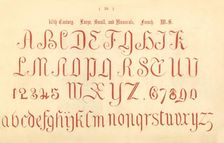 ( 26 )
16th Century. Large, Small, and Numerals. French MS.
ABCDEFGHIJK
LMNOPQRSTUV
12345 WXYZ. 67890
abcdefghijklmnopqrstuvwxyz